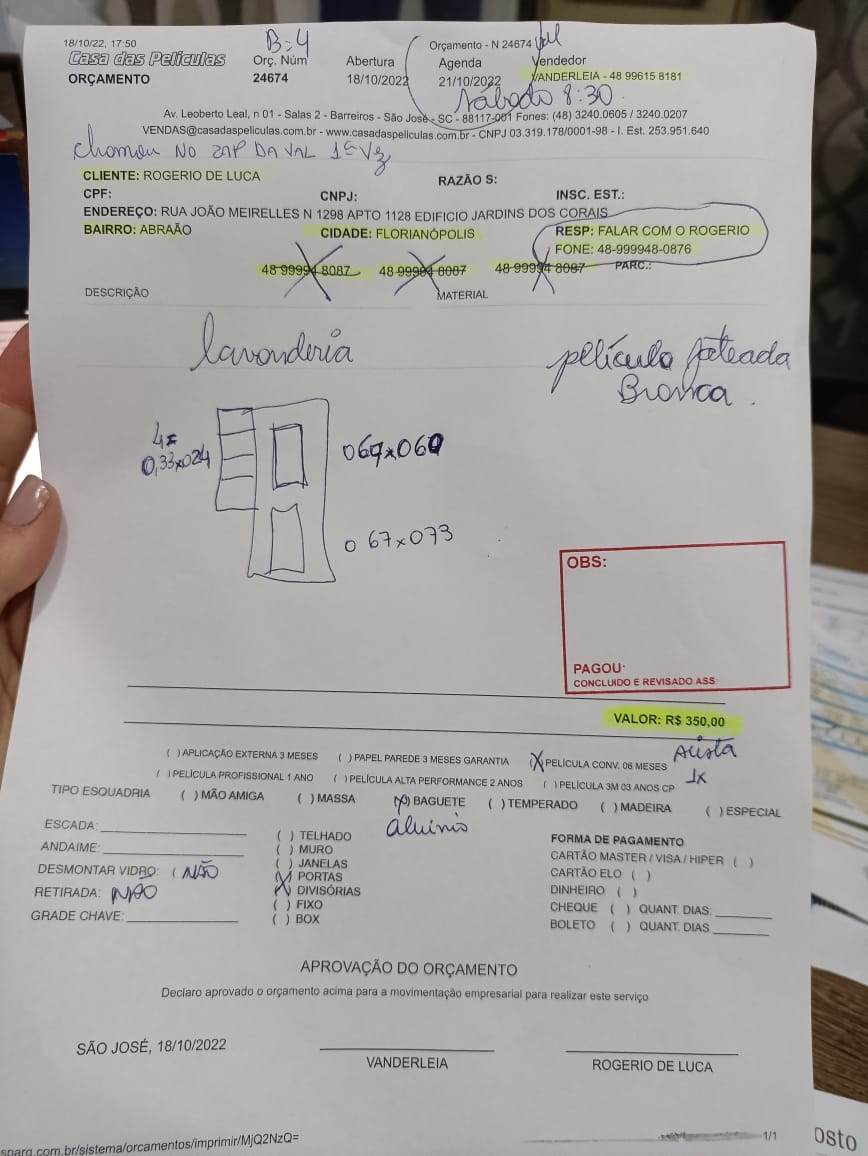 18/10/22, 17:50
B:4
Orçamento - N 24674
Casa das Películas
Orç. Núm
Abertura
Agenda
Vendedor
ORÇAMENTO
24674
18/10/2022
21/10/2022
VANDERLEIA - 48 99615 8181
Sábado 8:30
Av. Leoberto Leal, n 01 - Salas 2 - Barreiros - São José - SC - 88117-001 Fones: (48) 3240.0605 / 3240.0207
VENDAS@casadaspeliculas.com.br - www.casadaspeliculas.com.br - CNPJ 03.319.178/0001-98 - I. Est. 253.951.640
chamou NO ZAP DA VAL 1ª Vez
CLIENTE: ROGERIO DE LUCA
RAZÃO S:
CPF:
CNPJ:
INSC. EST.:
ENDEREÇO: RUA JOÃO MEIRELLES N 1298 APTO 1128 EDIFICIO JARDINS DOS CORAIS
BAIRRO: ABRAÃO
CIDADE: FLORIANÓPOLIS
RESP: FALAR COM O ROGERIO
FONE: 48-999948-0876
48 99994 8087
48 99994 8087
48 99994 8087
PARC.:
DESCRIÇÃO
MATERIAL
lavanderia
película Jateada
Branca.
4=
0,33x024
067x060
067x073
OBS:
PAGOU:
CONCLUIDO E REVISADO ASS:
VALOR: R$ 350,00
( ) APLICAÇÃO EXTERNA 3 MESES ( ) PAPEL PAREDE 3 MESES GARANTIA (X) PELÍCULA CONV. 06 MESES
Avista
( ) PELÍCULA PROFISSIONAL 1 ANO ( ) PELÍCULA ALTA PERFORMANCE 2 ANOS ( ) PELÍCULA 3M 03 ANOS CP
1x
TIPO ESQUADRIA ( ) MÃO AMIGA ( ) MASSA (X) BAGUETE ( ) TEMPERADO ( ) MADEIRA ( ) ESPECIAL
aluinio
ESCADA:
ANDAIME:
DESMONTAR VIDRO: ( NÃO
RETIRADA: NÃO
GRADE CHAVE:
( ) TELHADO
( ) MURO
( ) JANELAS
(X) PORTAS
(X) DIVISÓRIAS
( ) FIXO
( ) BOX
FORMA DE PAGAMENTO
CARTÃO MASTER / VISA / HIPER ( )
CARTÃO ELO ( )
DINHEIRO ( )
CHEQUE ( ) QUANT. DIAS:
BOLETO ( ) QUANT. DIAS
APROVAÇÃO DO ORÇAMENTO
Declaro aprovado o orçamento acima para a movimentação empresarial para realizar este serviço
SÃO JOSÉ, 18/10/2022
VANDERLEIA
ROGERIO DE LUCA
sparq.com.br/sistema/orcamentos/imprimir/MjQ2NzQ=
1/1
osto